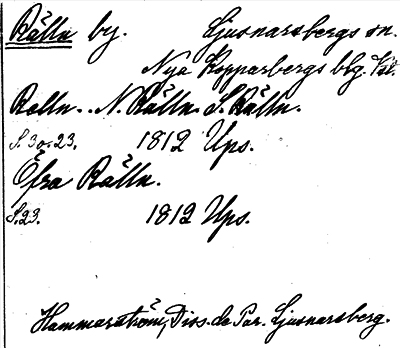 Rälln by. Ljusnarsbergs sn.
Nya Kopparbergs blg. Vstm.
Relln. N. Rälln. S. Rälln.
S. 3 o. 23. 1812 Ups.
Öfra Rälln.
S. 23. 1812 Ups.
Hammarström, Diss. de Par. Ljusnarsberg.